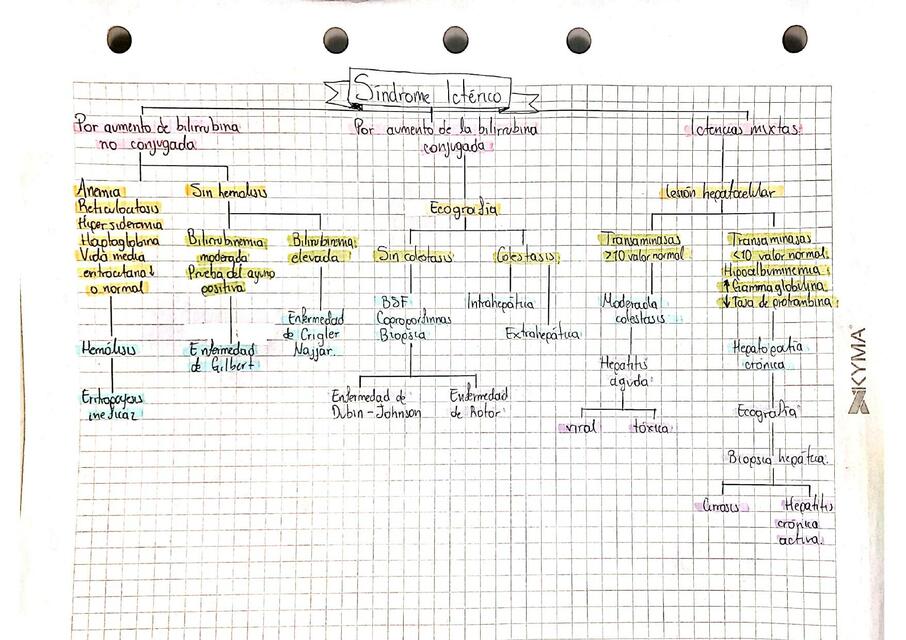 Síndrome Ictérico
Por aumento de bilirrubina
no conjugada
Anemia
Reticulocitosis
Hipersideremia
Haptoglobina
Vida media
eritrocitaria ↓
o normal
Hemólisis
Eritropoyesis
ineficaz
Sin hemolisis
Bilirrubinemia
moderada
Prueba del ayuno
positiva
Enfermedad
de Gilbert
Bilirrubinemia
elevada
Enfermedad
de Crigler
Najjar.
Por aumento de la bilirrubina
conjugada
Ecografía
Sin colestasis
BSF
Coproporfirinas
Biopsia
Enfermedad de
Dubin-Johnson
Enfermedad
de Rotor
Colestasis
Intrahepática
Extrahepática
Ictericias mixtas
lesión hepatocelular
Transaminasas
>10 valor normal
Moderada
colestasis
Hepatitis
aguda
viral
tóxica
Transaminasas
<10 valor normal
Hipoalbuminemia
↑ Gammaglobulina
↓ Tasa de protrombina
Hepatopatía
crónica
Ecografía
Biopsia hepática.
Cirrosis
Hepatitis
crónica
activa.
KYMA